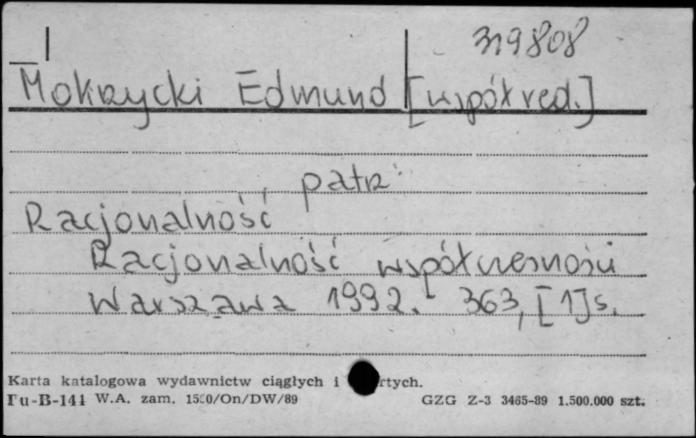 319808
Mokrzycki Edmund [współred.]
patrz:
Racjonalność
Racjonalność współczesności
Warszawa 1992. 363, [1] s.
Karta katalogowa wydawnictw ciągłych i rtych.
Pu-B-141 W.A. zam. 1500/On/DW/89 GZG Z-3 3465-89 1.500.000 szt.